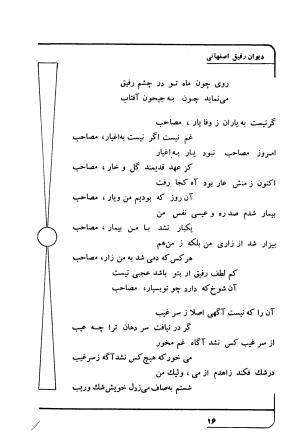 دیوان رفیق اصفهانی
روی چون ماه تو در چشم رفیق
می‌نماید چون به جیحون آفتاب
گرنیست به یاران ز وفا یار، مصاحب
غم نیست اگر نیست به‌اغیار، مصاحب
امروز مصاحب نبود یار به اغیار
کز عهد قدیمند گل و خار، مصاحب
اکنون ز منش عار بود آه کجا رفت
آن روز که بودیم من ویار، مصاحب
بیمار شدم صد ره و عیسی نفس من
یکبار نشد با من بیمار، مصاحب
بیزار شد از زاری من بلکه ز من‌هم
هرکس که دمی شد به من زار، مصاحب
کم لطف رفیق ار بتو باشد عجبی نیست
آن شوخ که دارد چو توبسیار، مصاحب
آن را که نیست آگهی اصلا ز سر غیب
گر در نیافت سر دهان ترا چه عیب
از سر غیب کس نشد آگاه غم مخور
می خور که هیچ کس نشد آگه ز سر غیب
درشک فکند زاهدم از می، ولیك من
شستم به‌صاف می زدل خویش شك وریب
۱۶